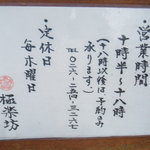 ・営業時間
十時半～十八時
(十八時以後は予約のみ
承ります)
TEL〇二六-二五四-三二六七
・定休日
毎木曜日
極楽坊